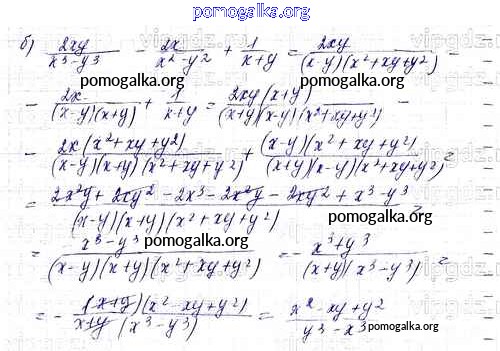 pomogalka.org
б) 2xy/(x³-y³) - 2x/(x²-y²) + 1/(x+y) = 2xy/((x-y)(x²+xy+y²)) -
pomogalka.org pomogalka.org
- 2x/((x-y)(x+y)) + 1/(x+y) = 2xy(x+y)/((x+y)(x-y)(x²+xy+y²)) -
pomogalka.org
- 2x(x²+xy+y²)/((x-y)(x+y)(x²+xy+y²)) + (x-y)(x²+xy+y²)/((x+y)(x-y)(x²+xy+y²)) =
pomogalka.org pomogalka.org
= (2x²y + 2xy² - 2x³ - 2x²y - 2xy² + x³ - y³)/((x-y)(x+y)(x²+xy+y²)) =
pomogalka.org
= (-x³-y³)/((x-y)(x+y)(x²+xy+y²)) = - (x³+y³)/((x+y)(x³-y³)) =
pomogalka.org pomogalka.org
= - (x+y)(x²-xy+y²)/(x+y(x³-y³)) = (x²-xy+y²)/(y³-x³)
pomogalka.org pomogalka.org